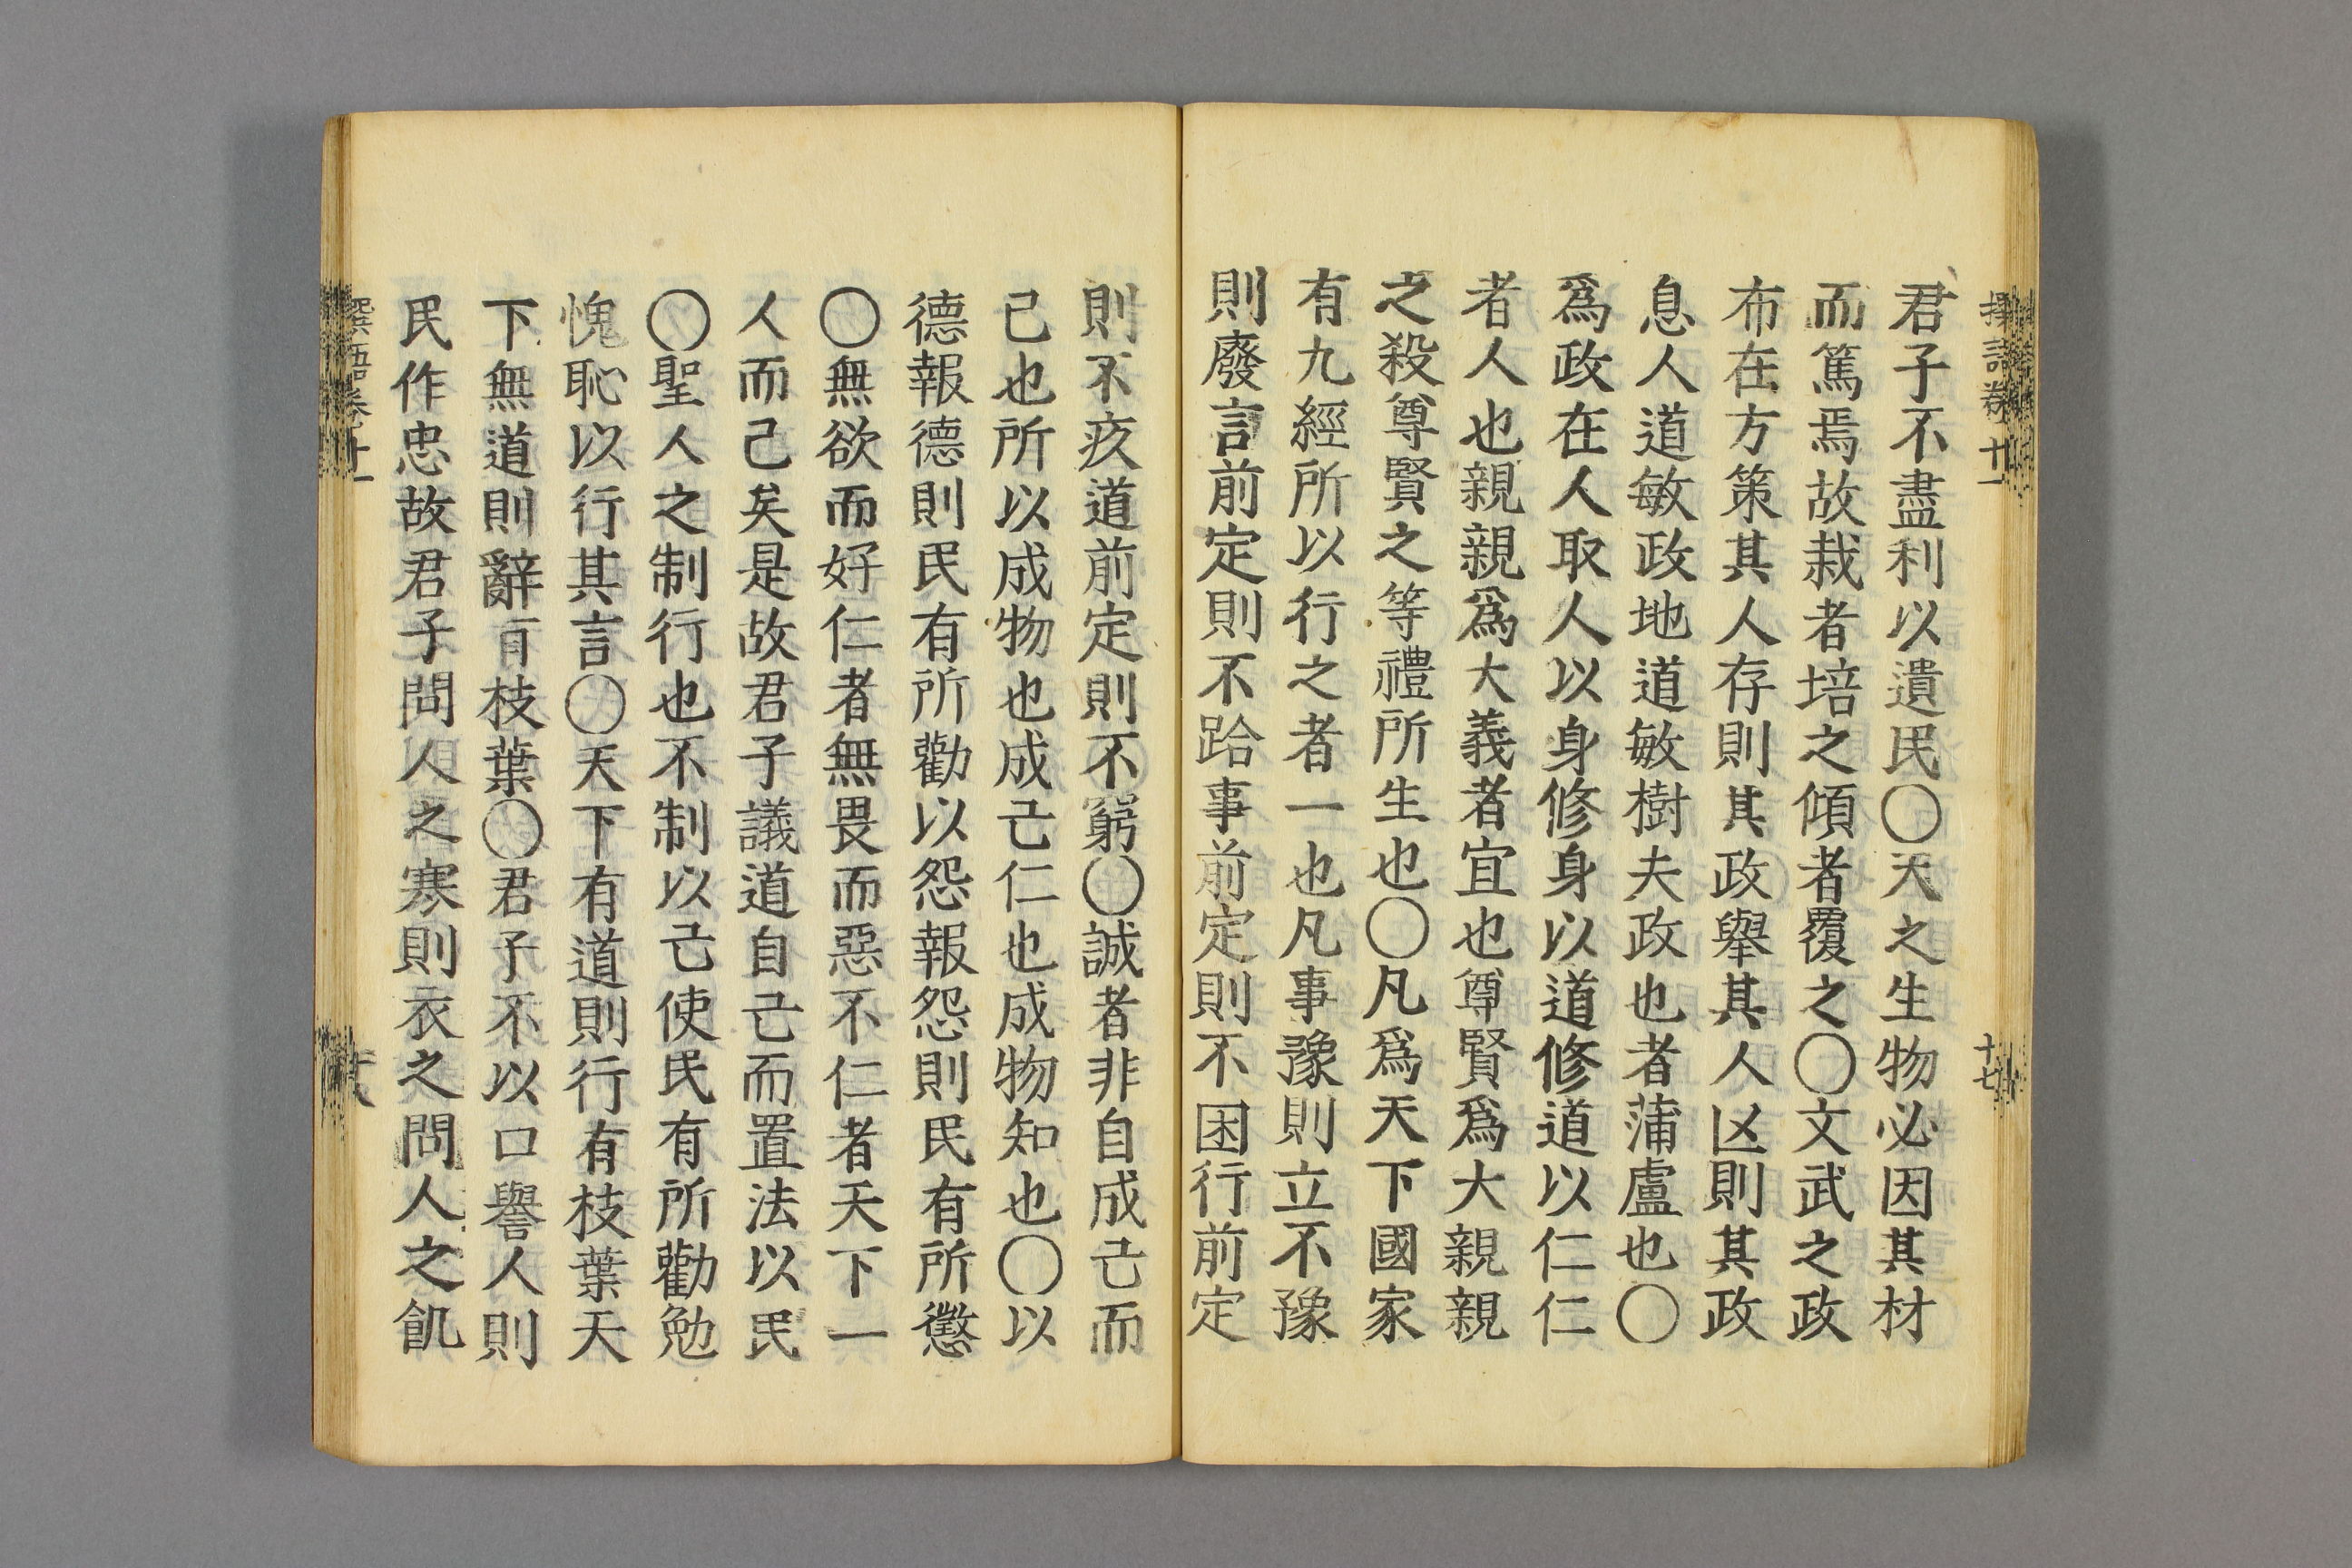 撰語卷十一
十七
君子不盡利以遺民〇天之生物必因其材
而篤焉故栽者培之傾者覆之〇文武之政
布在方策其人存則其政舉其人亾則其政
息人道敏政地道敏樹夫政也者蒲盧也〇
爲政在人取人以身修身以道修道以仁仁
者人也親親爲大義者宜也尊賢爲大親親
之殺尊賢之等禮所生也〇凡爲天下國家
有九經所以行之者一也凡事豫則立不豫
則廢言前定則不跲事前定則不困行前定
則不疚道前定則不窮〇誠者非自成己而
已也所以成物也成己仁也成物知也〇以
德報德則民有所勸以怨報怨則民有所懲
〇無欲而好仁者無畏而惡不仁者天下一
人而己矣是故君子議道自己而置法以民
〇聖人之制行也不制以己使民有所勸勉
愧恥以行其言〇天下有道則行有枝葉天
下無道則辭有枝葉〇君子不以口譽人則
民作忠故君子問人之寒則衣之問人之飢
撰語卷十一